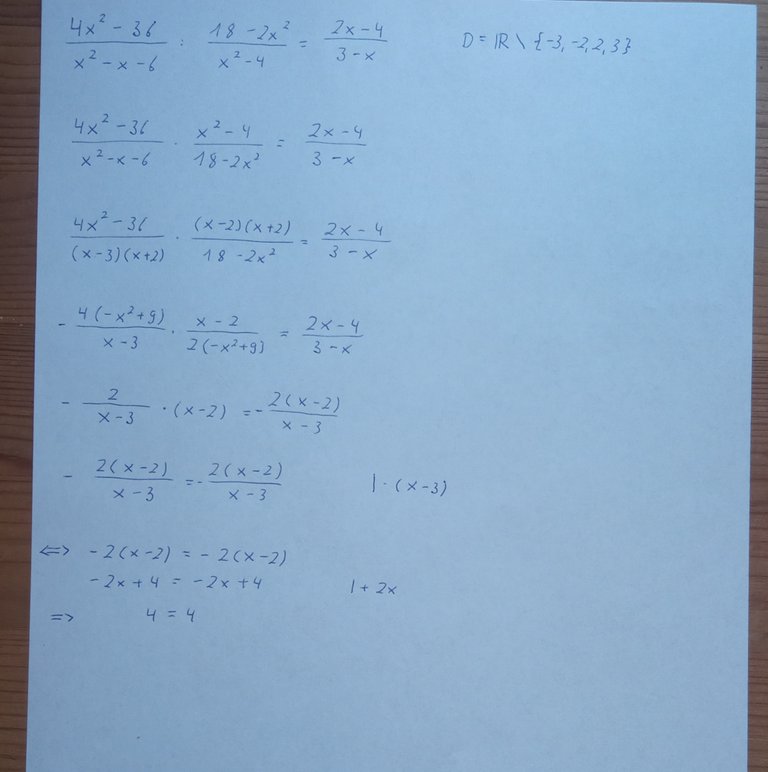 (4x² - 36)/(x² - x - 6) : (18 - 2x²)/(x² - 4) = (2x - 4)/(3 - x) D = ℝ \ {-3, -2, 2, 3}
(4x² - 36)/(x² - x - 6) · (x² - 4)/(18 - 2x²) = (2x - 4)/(3 - x)
(4x² - 36)/((x-3)(x+2)) · ((x-2)(x+2))/(18 - 2x²) = (2x - 4)/(3 - x)
- (4(-x²+9))/(x - 3) · (x - 2)/(2(-x²+9)) = (2x - 4)/(3 - x)
- 2/(x - 3) · (x - 2) = - (2(x - 2))/(x - 3)
- (2(x - 2))/(x - 3) = - (2(x - 2))/(x - 3) | · (x - 3)
⟺ -2(x - 2) = -2(x - 2)
-2x + 4 = -2x + 4 | + 2x
⟹ 4 = 4